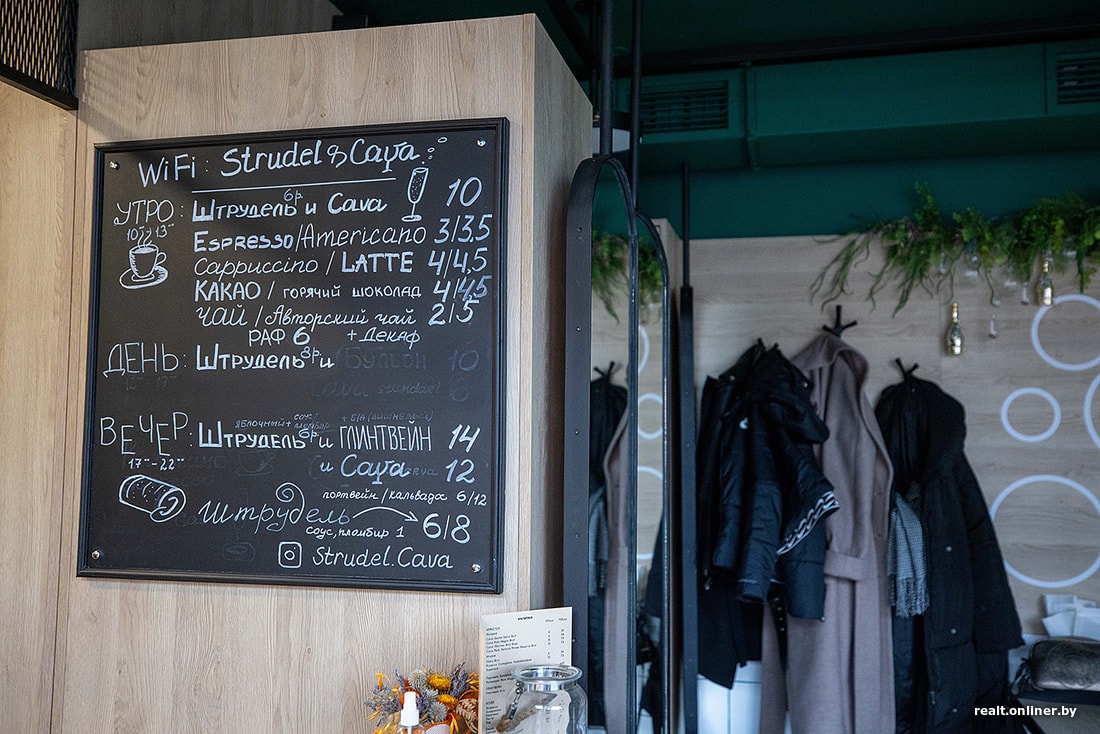 WiFi: Strudel & Cava
УТРО: Штрудель 6р и Cava 10
10⁰⁰-13⁰⁰
Espresso/Americano 3/3,5
Cappuccino / LATTE 4/4,5
КАКАО / горячий шоколад 4/4,5
ЧАЙ / Авторский чай 2/5
РАФ 6 + Декаф
ДЕНЬ: Штрудель 8р и Бульон 10
яблочный + соус/пломбир
ВЕЧЕР: Штрудель 6р и ГЛИНТВЕЙН 14
17⁰⁰-22⁰⁰
и Cava 12
портвейн / кальвадос 6/12
Штрудель 6/8
соус, пломбир 1
Strudel.Cava
realt.onliner.by